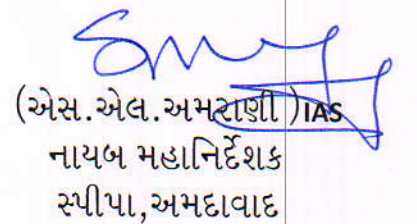 (એસ.એલ.અમરાણી )IAS
નાયબ મહાનિર્દેશક
સ્પીપા,અમદાવાદ